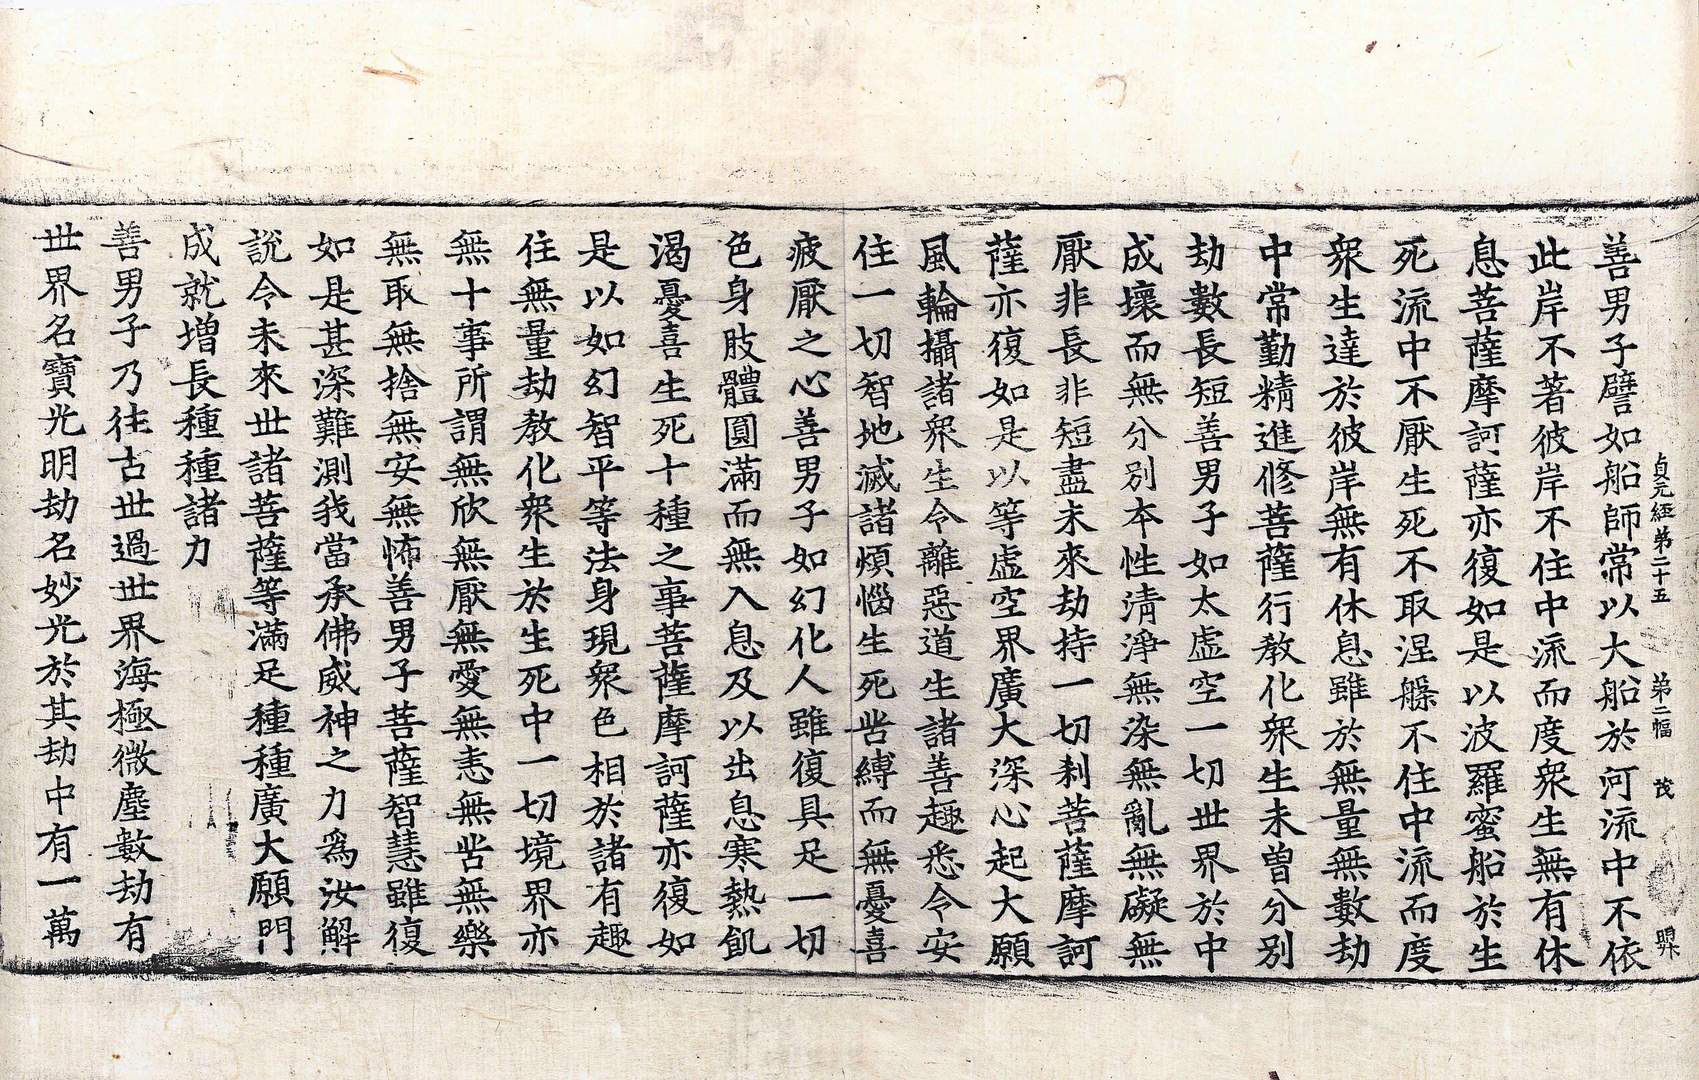 貞元經第二十五 第二幅 茂
善男子譬如船師常以大船於河流中不依
此岸不著彼岸不住中流而度衆生無有休
息菩薩摩訶薩亦復如是以波羅蜜船於生
死流中不厭生死不取涅槃不住中流而度
衆生達於彼岸無有休息雖於無量無數劫
中常勤精進修菩薩行教化衆生未曾分別
劫數長短善男子如太虛空一切世界於中
成壞而無分別本性清淨無染無亂無礙無
厭非長非短盡未來劫持一切刹菩薩摩訶
薩亦復如是以等虛空界廣大深心起大願
風輪攝諸衆生令離惡道生諸善趣悉令安
住一切智地滅諸煩惱生死苦縛而無憂喜
疲厭之心善男子如幻化人雖復具足一切
色身肢體圓滿而無入息及以出息寒熱飢
渴憂喜生死十種之事菩薩摩訶薩亦復如
是以如幻智平等法身現衆色相於諸有趣
住無量劫教化衆生於生死中一切境界亦
無十事所謂無欣無厭無愛無恚無苦無樂
無取無捨無安無怖善男子菩薩智慧雖復
如是甚深難測我當承佛威神之力爲汝解
說令未來世諸菩薩等滿足種種廣大願門
成就增長種種諸力
善男子乃往古世過世界海極微塵數劫有
世界名寶光明劫名妙光於其劫中有一萬